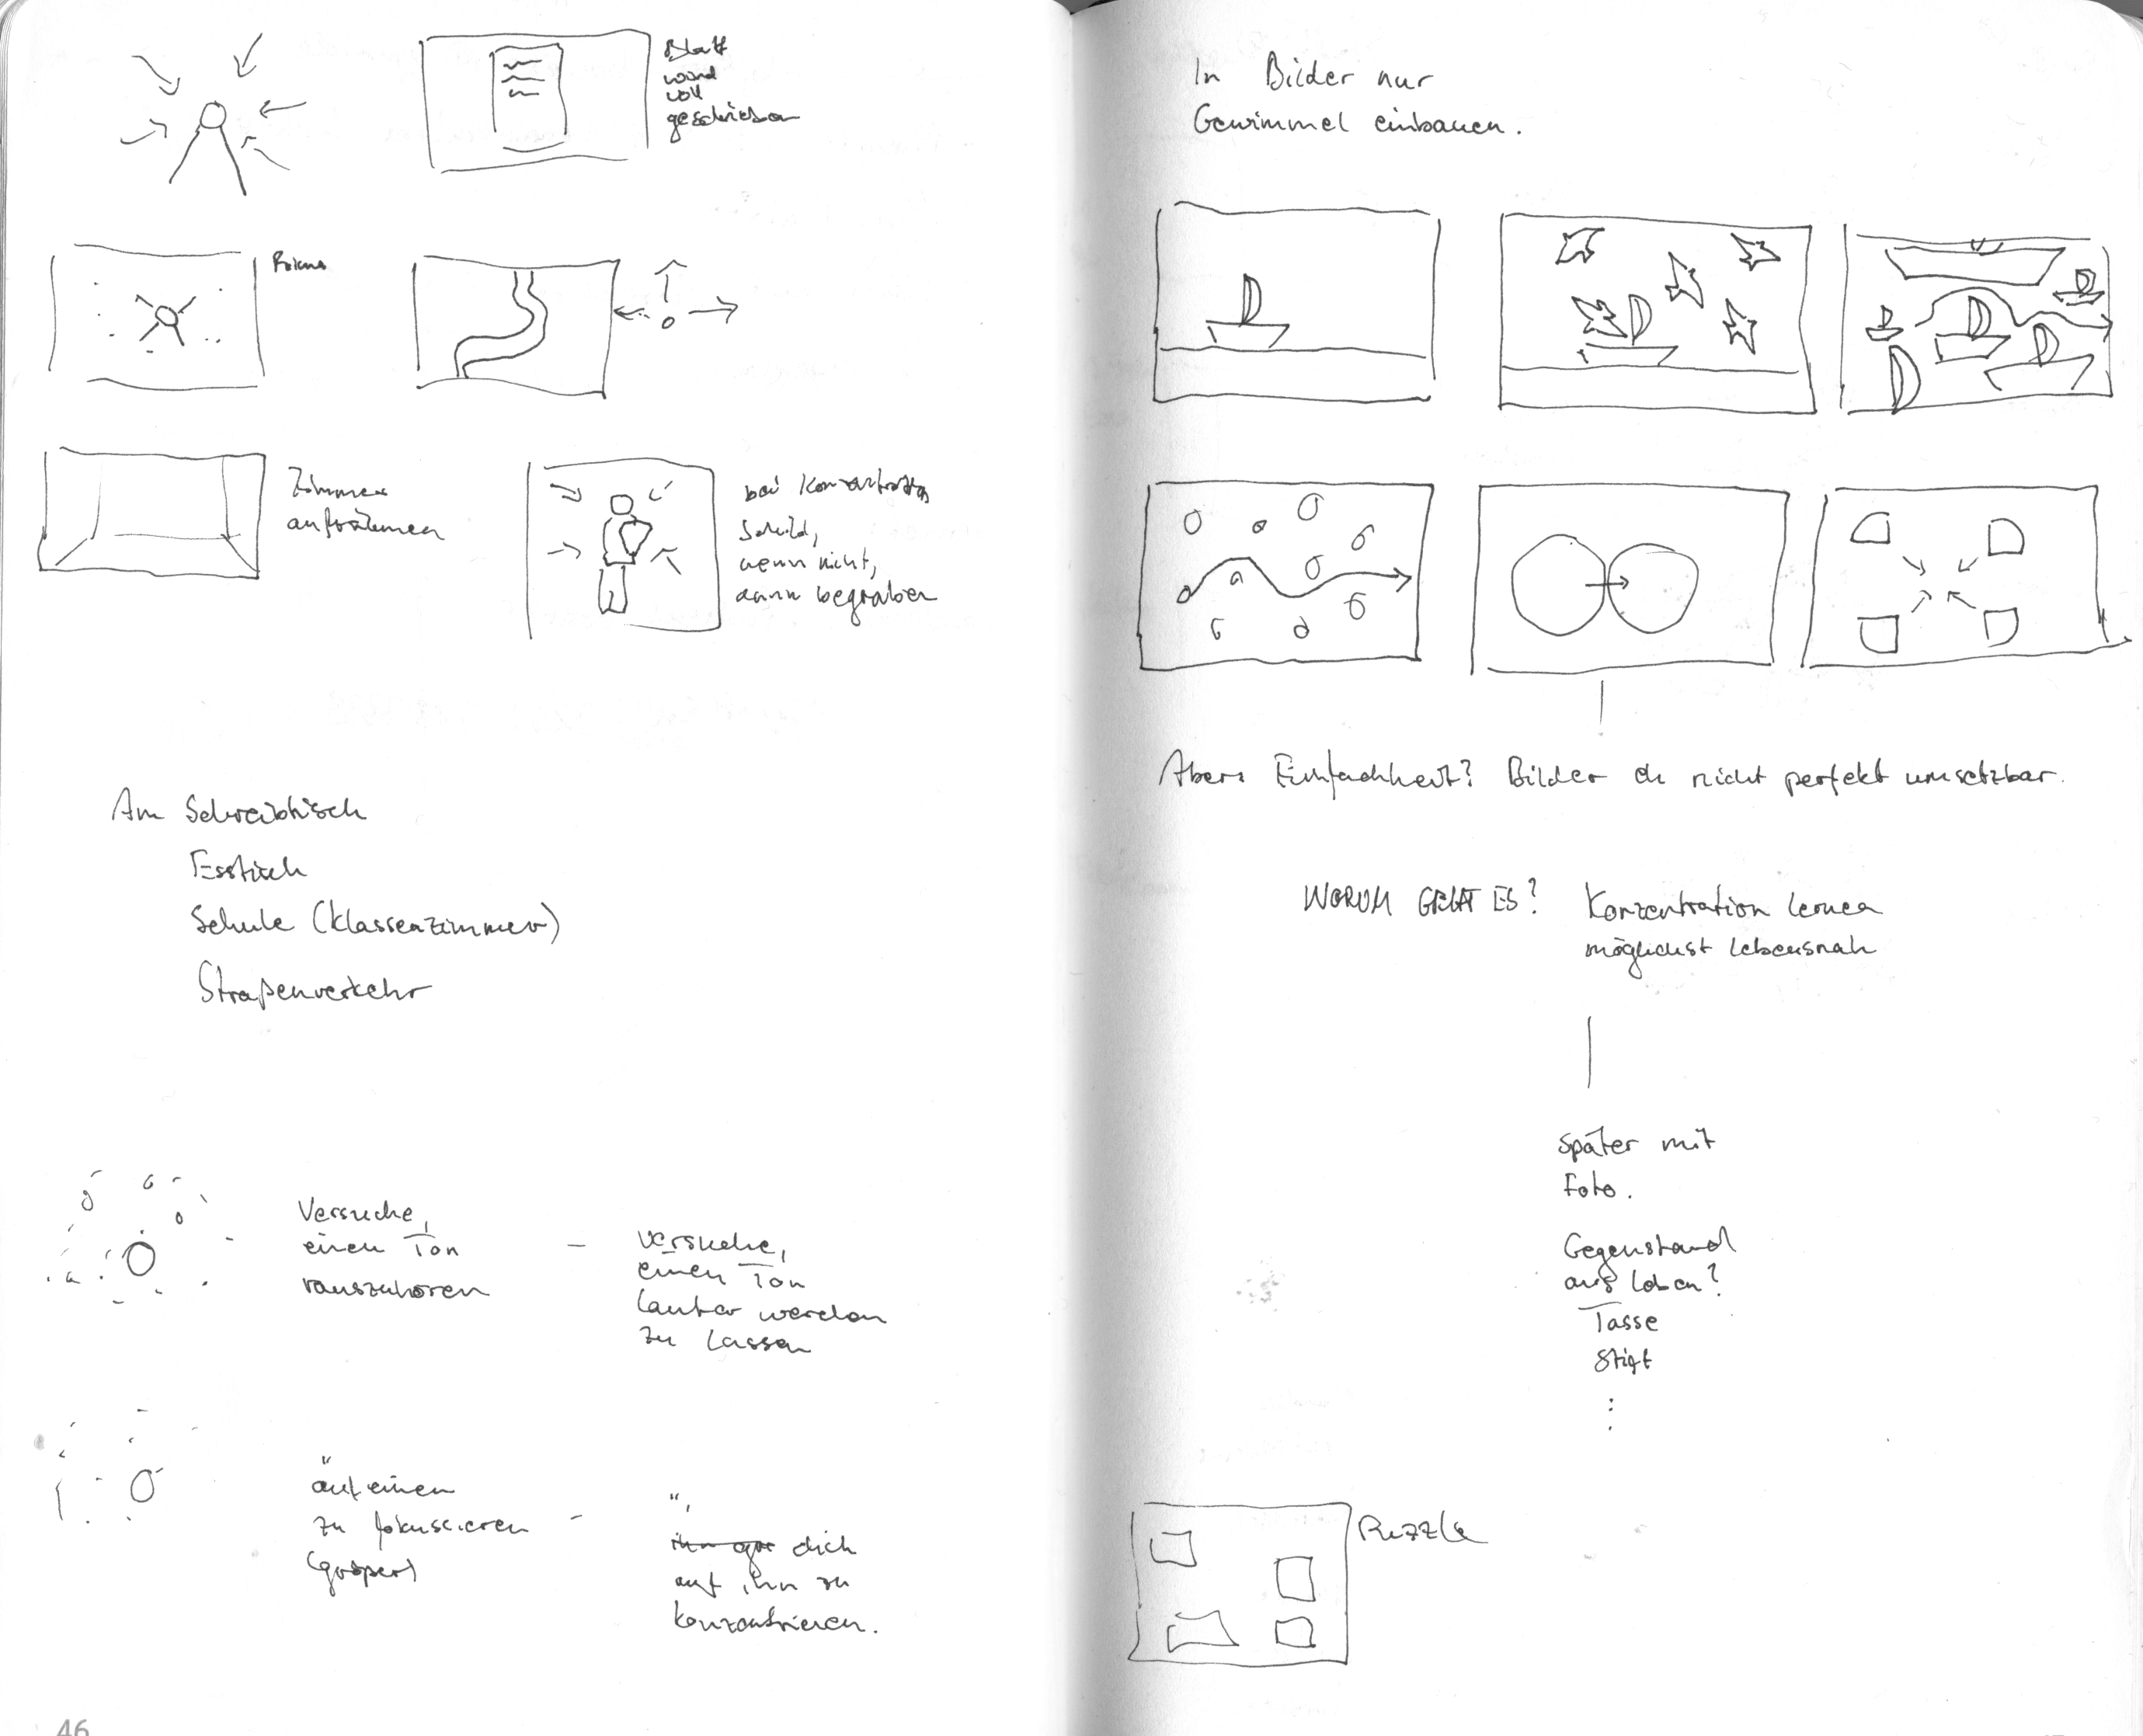 Blatt
wird
voll
geschrieben
Fokus
Zimmer
aufräumen
bei Konzentration
Schild,
wenn nicht,
dann begraben
Am Schreibtisch
Esstisch
Schule (Klassenzimmer)
Straßenverkehr
Versuche,
einen Ton
rauszuhören
– versuche,
einen Ton
lauter werden
zu lassen
"
auf einen
zu fokussieren –
",
dich
auf ihn zu
konzentrieren.
46
In Bilder nur
Gewimmel einbauen.
Aber: Einfachheit? Bilder nicht perfekt umsetzbar.
WORUM GEHT ES? Konzentration lernen
möglichst lebensnah
Später mit
Foto.
Gegenstand
aus Leben?
Tasse
Stift
⋮
Puzzle